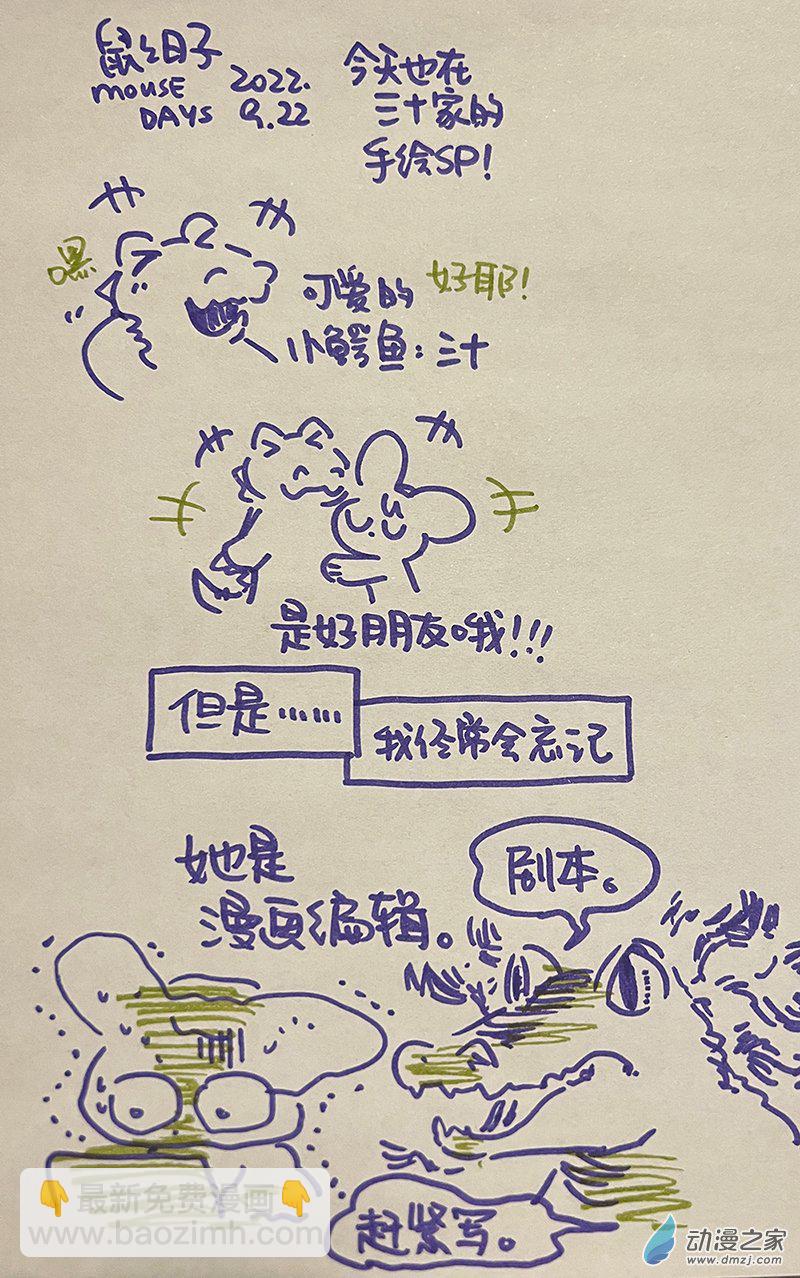 鼠鼠日子
MOUSE
DAYS
2022.
9.22
今天也在
三十家的
手绘SP!
嘿
可爱的
小鳄鱼:三十
好耶!
是好朋友哦!!!
但是……
我经常会忘记
她是
漫画编辑。
剧本。
赶紧写。
👇最新免费漫画👇
www.baozimh.com
动漫之家
www.dmzj.com